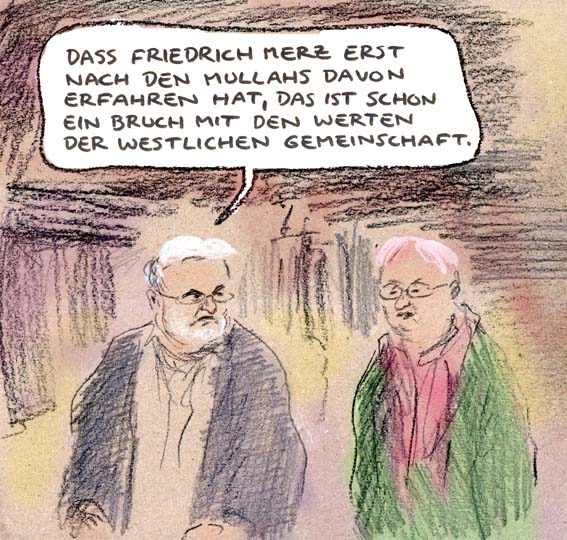 DASS FRIEDRICH MERZ ERST
NACH DEN MULLAHS DAVON
ERFAHREN HAT, DAS IST SCHON
EIN BRUCH MIT DEN WERTEN
DER WESTLICHEN GEMEINSCHAFT.